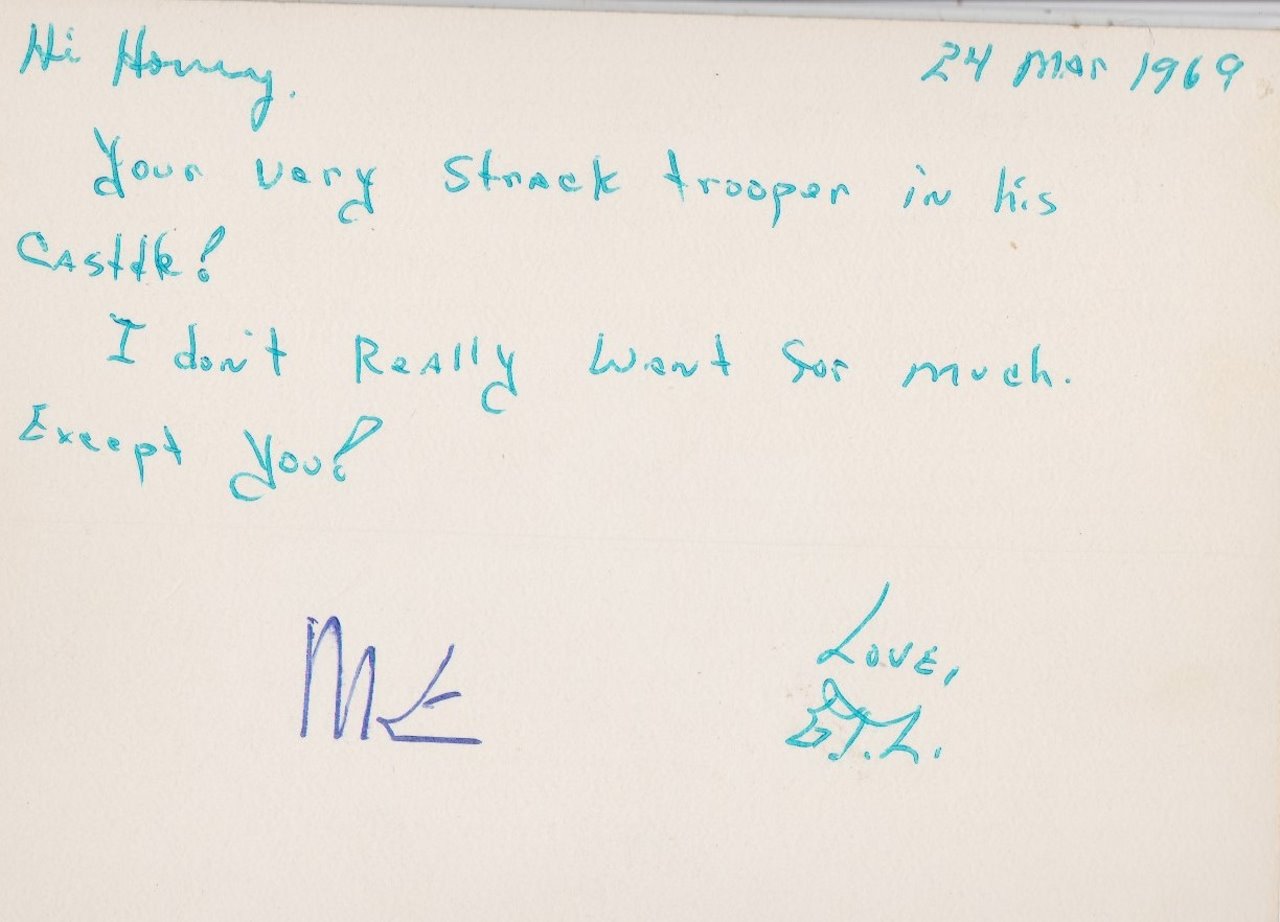 Hi Honey.
24 Mar 1969
Your very Strack trooper in his
Casttle!
I don't Really Want for much.
Except You!
Love,
E.T.L.